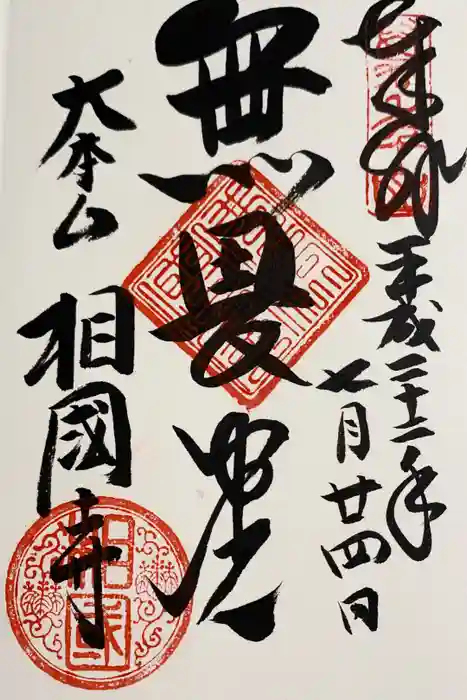 奉拝
平成二十二年
七月廿四日
無畏堂
大本山
相國寺